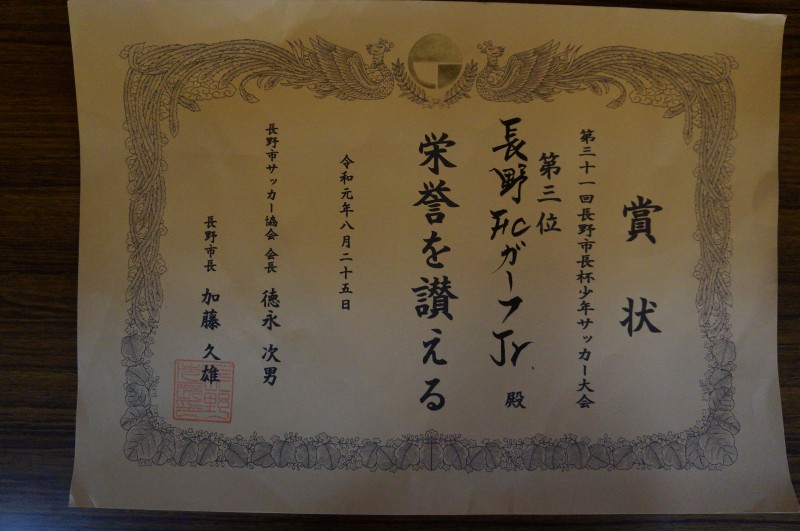 賞状
第三十一回長野市長杯少年サッカー大会
第三位
長野FCガーフJr.殿
栄誉を讃える
令和元年八月二十五日
長野市サッカー協会 会長 徳永 次男
長野市長 加藤 久雄